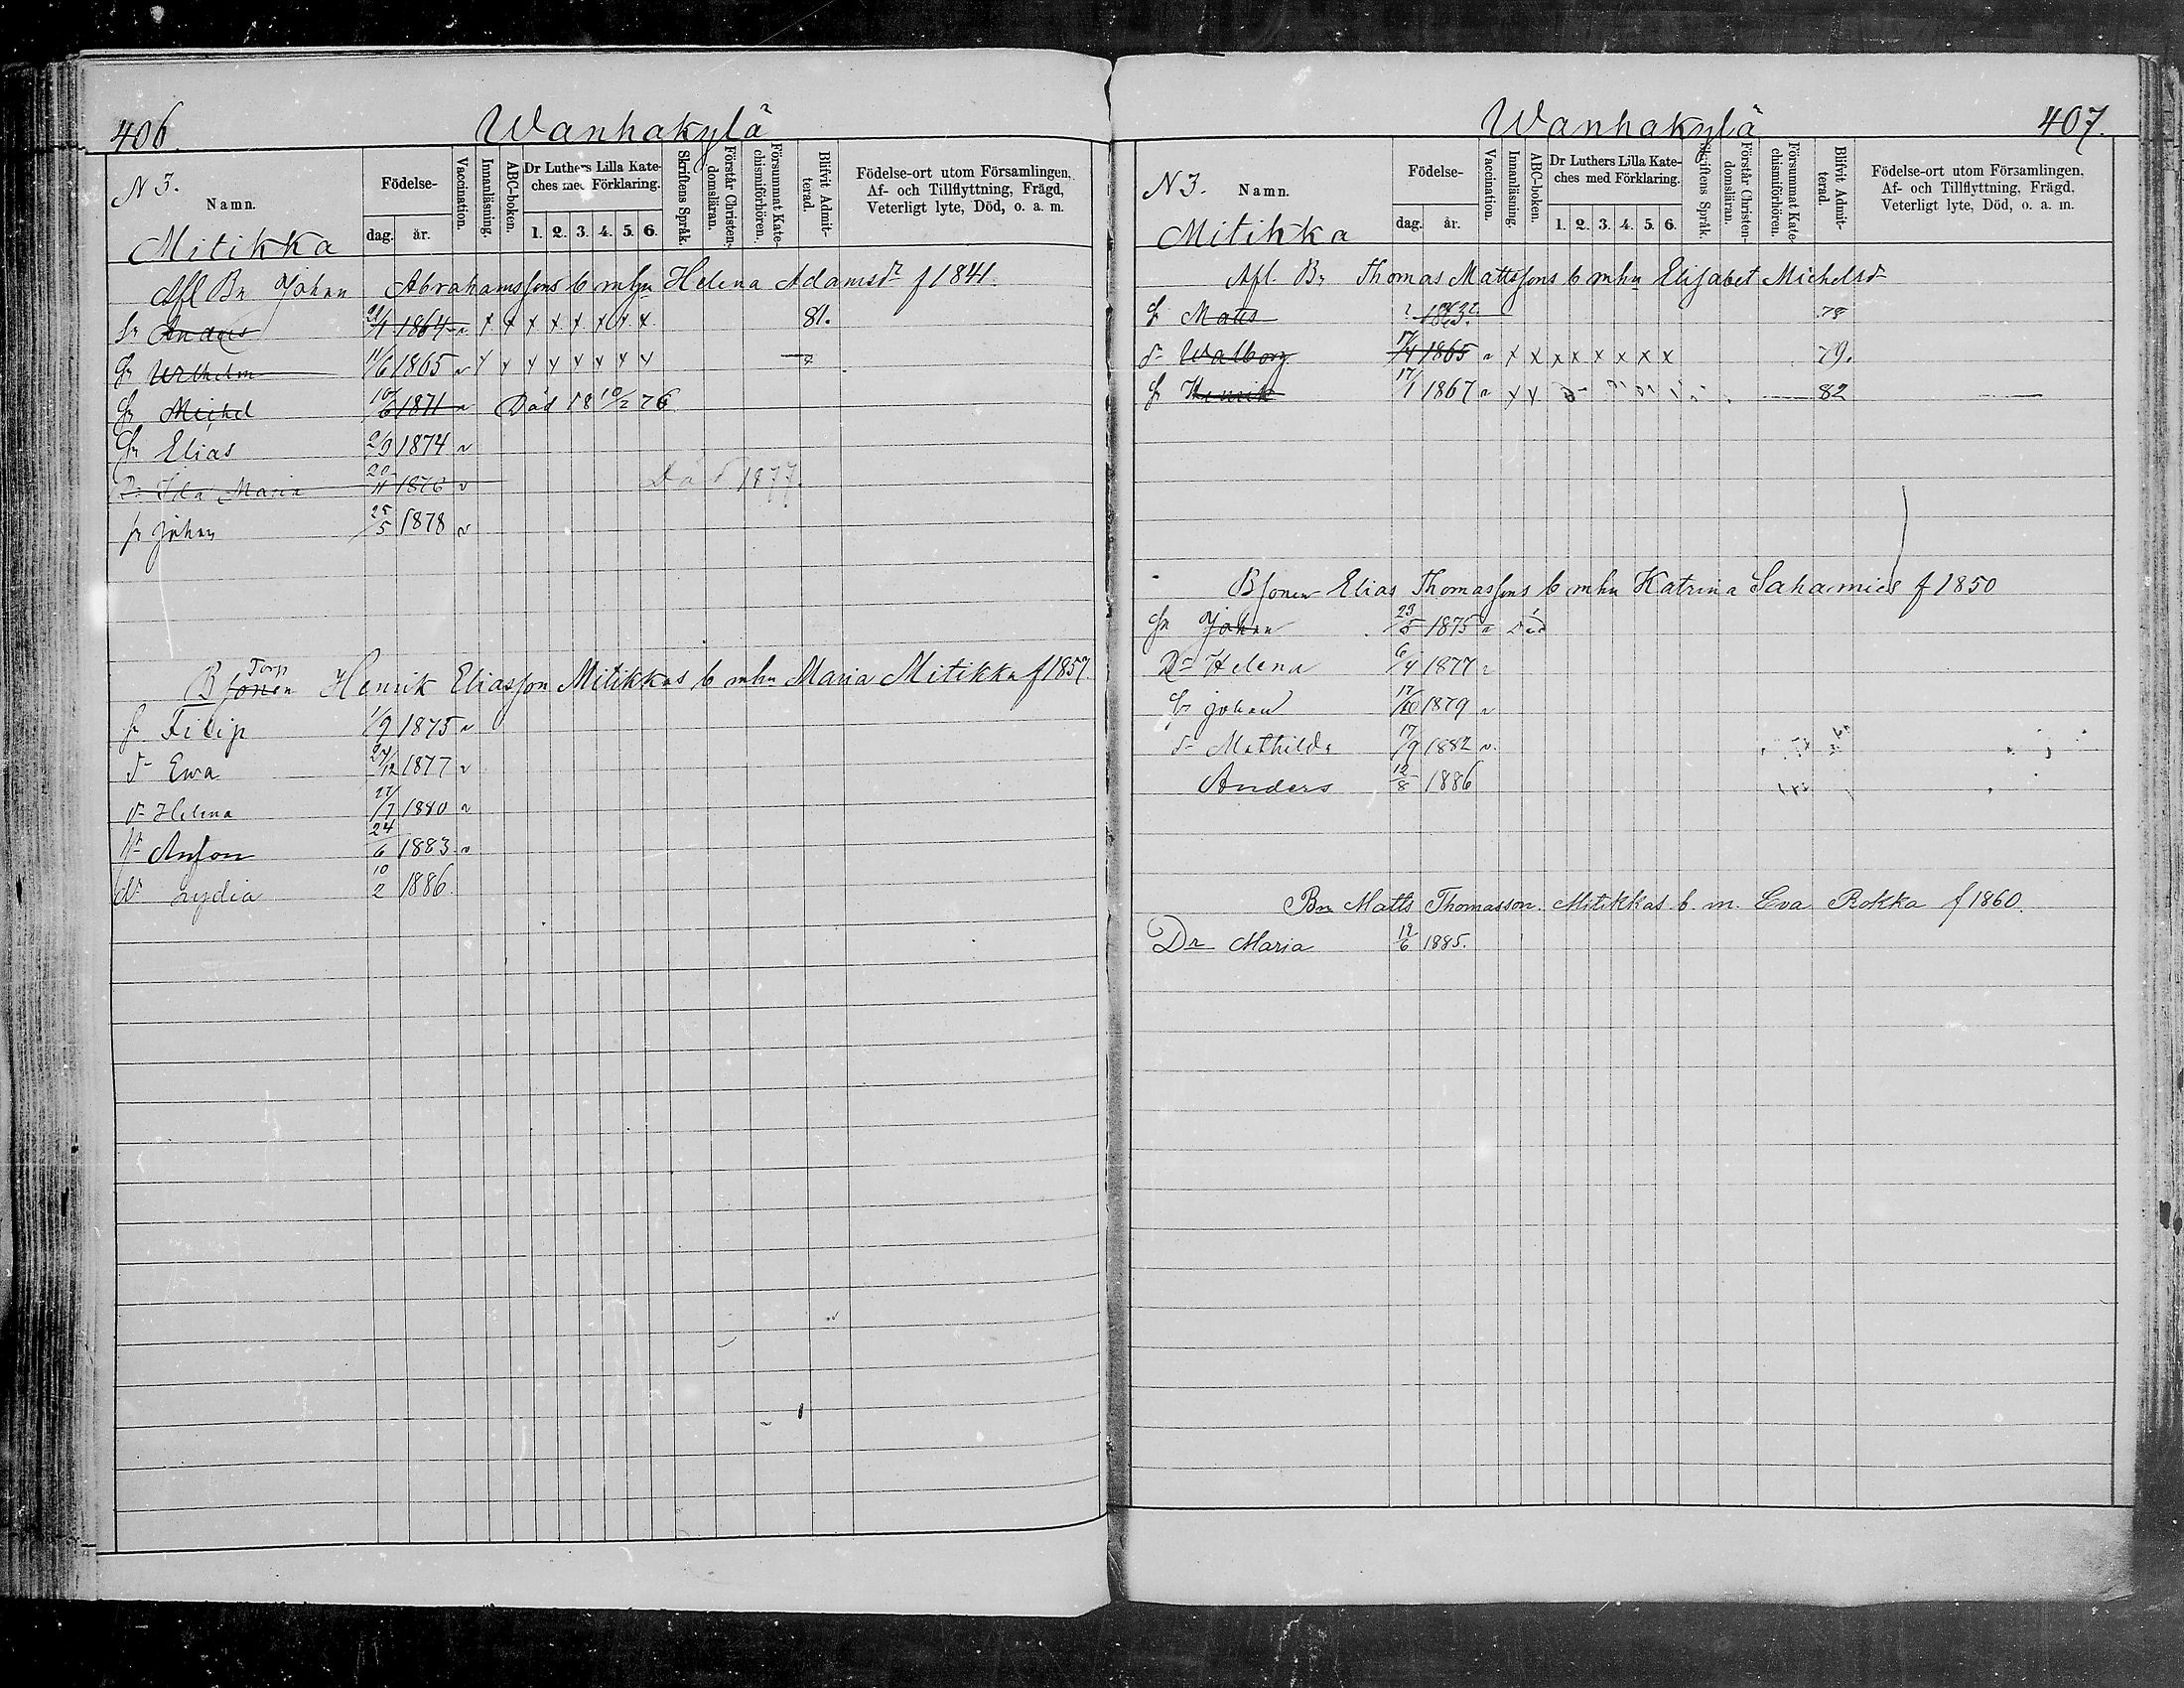 406.
Wanhakylä
N 3.
Namn.
Födelse-
dag. år.
Vaccination.
Innanläsning.
ABC-boken.
Dr Luthers Lilla Kate-
ches med Förklaring.
1. 2. 3. 4. 5. 6.
Skriftens Språk.
Förstår Christen-
domsläran.
Försummat Kate-
chismiförhören.
Blifvit Admit-
terad.
Födelse-ort utom Församlingen,
Af- och Tillflyttning, Frägd,
Veterligt lyte, Död, o. a. m.
Mitikka
Afl Bn Johan Abrahamssons b mhn Helena Adamsdr f 1841.
Sn Anders 1864 x x x x x x x x 81.
Sn Wilhelm 11/6 1865
Sn Michel 10/6 1871 Död 18 10/2 76
Sn Elias 2/9 1874
Dr Ida Maria 20/11 1876 Död 1877.
Sn Johan 25/5 1878
Torp
B sonen Henrik Eliasson Mitikkas b mhn Maria Mitikka f 1857.
Sn Filip 1/9 1875
dr Ewa 27/12 1877
dr Helena 27/7 1880
sn Anton 24/6 1883
dr Lydia 10/2 1886.
Wanhakylä
407.
N 3. Namn.
Födelse-
dag. år.
Vaccination.
Innanläsning.
ABC-boken.
Dr Luthers Lilla Kate-
ches med Förklaring.
1. 2. 3. 4. 5. 6.
Skriftens Språk.
Förstår Christen-
domsläran.
Försummat Kate-
chismiförhören.
Blifvit Admit-
terad.
Födelse-ort utom Församlingen,
Af- och Tillflyttning, Frägd,
Veterligt lyte, Död, o. a. m.
Mitikka
Afl. Bn Thomas Mattssons b mhn Elisabet Michelsdr
S Matts ? 1863? 78
dr Walborg 17/4 1865 x x x x x x x x 79.
S Henrik 17/1 1867 x x 82
B sonen Elias Thomassons b mhn Katrina Sahamies f 1850
Sn Johan 23/5 1875 Död
Dr Helena 6/4 1877
Sn Johan 17/10 1879
dr Mathilda 17/9 1882
Anders 12/8 1886
Bn Matts Thomasson Mitikkas b. m. Eva Rokka f 1860.
Dr Maria 12/6 1885.